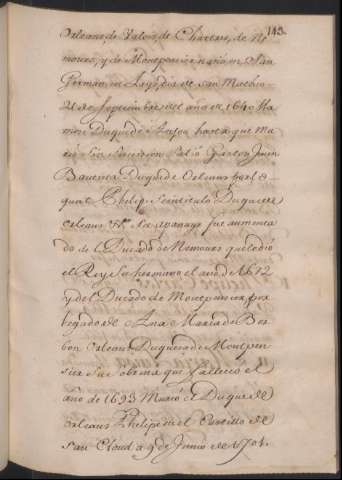 143.
Orleans, de Valois, de Chartres, de Ne
mours, y de Montpensier nacio en San
German en Laye, dia de San Matheo
21. de septiembre del año de 1640 lla
maron Duque de Anjou hasta que mu
rio sin sucesion su tio Gaston Juan
Bauptista Duque de Orleans por lo q.
qual Phelipe se intitulo Duque de
Orleans. Su apanage fue aumenta
do del Ducado de Nemours que le dio
el Rey su hermano el año de 1672
y del Ducado de Montpensier, por
legado de Ana Maria de Bor
bon Orleans Duquesa de Montpen
sier su prima que fallecio el
año de 1693 Murio el Duque de
Orleans Phelipe en el Castillo de
San Cloud a 9 de Junio de 1701.